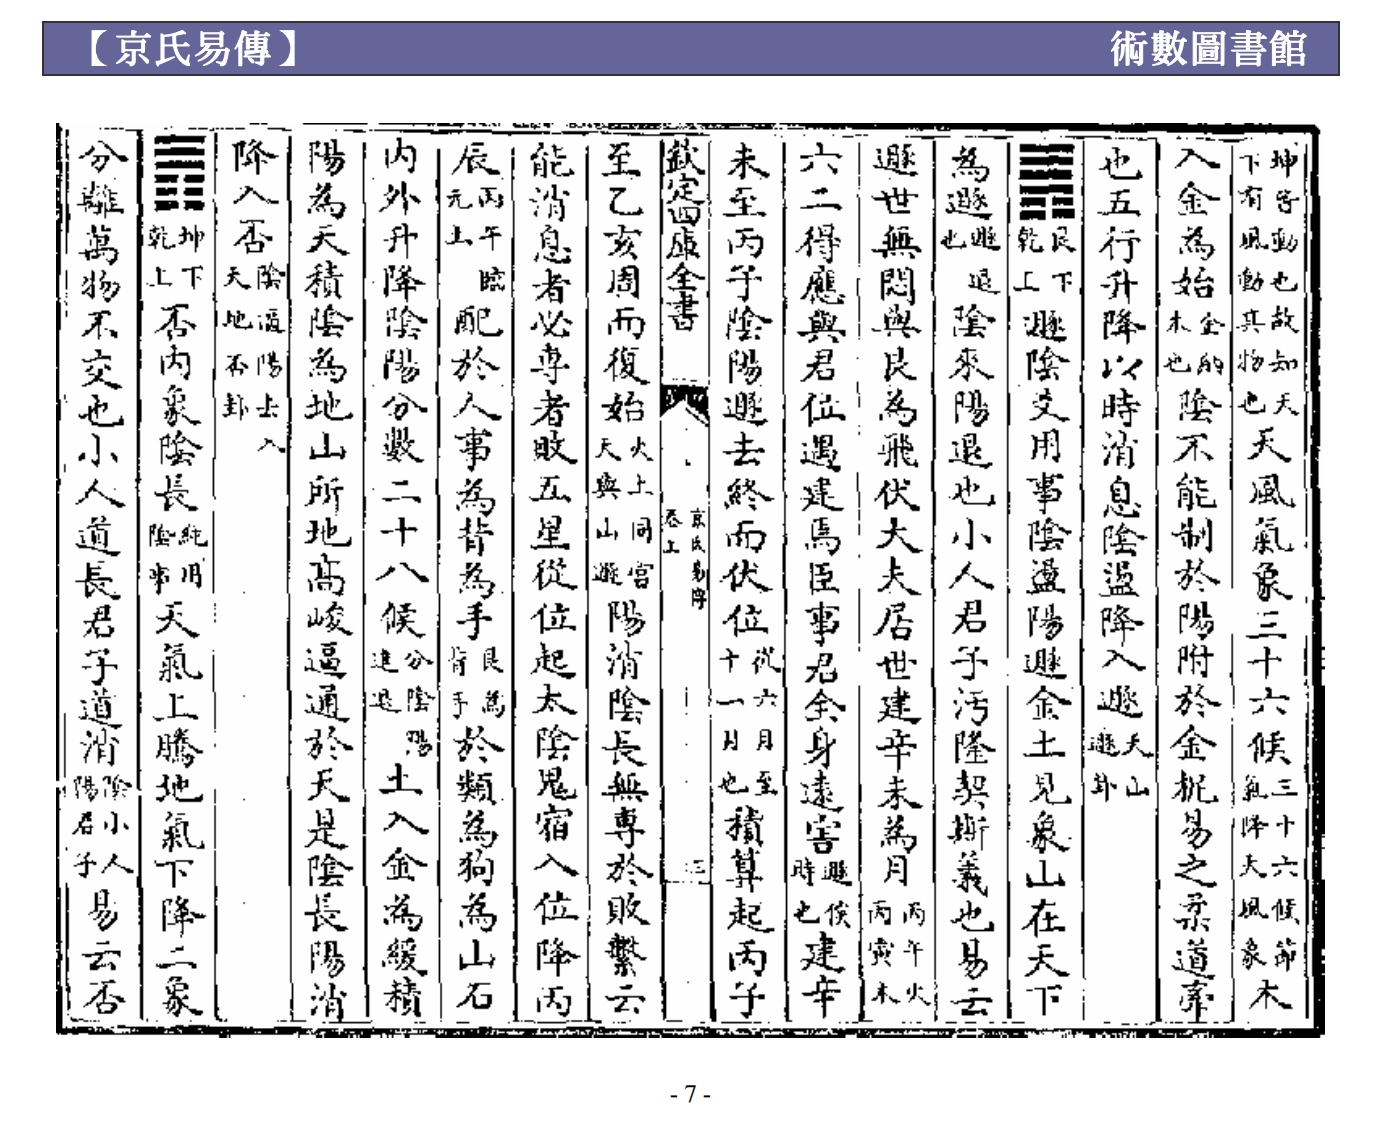 【京氏易傳】 術數圖書館
坤皆動也故知天下有風動其物也天風氣象三十六候三十六候節氣降大風象木
入金為始金納木也陰不能制於陽附於金柅易之柔道牽
也五行升降以時消息陰盪降入遯天山遯卦
䷠艮下乾上遯陰爻用事陰盪陽遯金土見象山在天下
為遯遯退也陰來陽退也小人君子汚隆契斯義也易云
遯世無悶與艮為飛伏大夫居世建辛未為月丙午火丙寅木
六二得應與君位遇建焉臣事君全身遠害遯俟時也建辛
未至丙子陰陽遯去終而伏位從六月至十一月也積算起丙子
欽定四庫全書
京氏易傳
卷上
三
至乙亥周而復始火土同宮天與山遯陽消陰長無專於敗繫云
能消息者必專者敗五星從位起太陰鬼宿入位降丙
辰丙午臨元士配於人事為背為手艮為背手於類為狗為山石
内外升降陰陽分數二十八候分陰陽進退土入金為緩積
陽為天積陰為地山所地高峻逼通於天是陰長陽消
降入否陰逼陽去入天地否卦
䷋坤下乾上否内象陰長純用陰事天氣上騰地氣下降二象
分離萬物不交也小人道長君子道消陰小人陽君子易云否
- 7 -